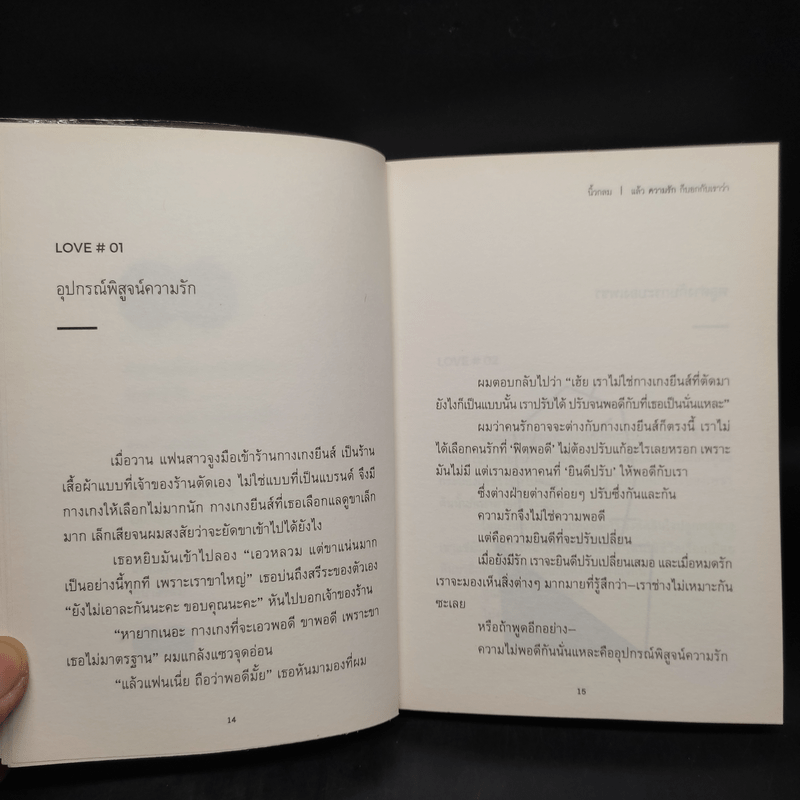 LOVE # 01
อุปกรณ์พิสูจน์ความรัก
เมื่อวาน แฟนสาวจูงมือเข้าร้านกางเกงยีนส์ เป็นร้าน
เสื้อผ้าแบบที่เจ้าของร้านตัดเอง ไม่ใช่แบบที่เป็นแบรนด์ จึงมี
กางเกงให้เลือกไม่มากนัก กางเกงยีนส์ที่เธอเลือกแลดูขาเล็ก
มาก เล็กเสียจนผมสงสัยว่าจะยัดขาเข้าไปได้ยังไง
เธอหยิบมันเข้าไปลอง “เอวหลวม แต่ขาแน่นมาก
เป็นอย่างนี้ทุกที เพราะเราขาใหญ่” เธอบ่นถึงสรีระของตัวเอง
“ยังไม่เอาละกันนะคะ ขอบคุณนะคะ” หันไปบอกเจ้าของร้าน
“หายากเนอะ กางเกงที่จะเอวพอดี ขาพอดี เพราะขา
เธอไม่มาตรฐาน” ผมแกล้งแซวจุดอ่อน
“แล้วแฟนเนี่ย ถือว่าพอดีมั้ย” เธอหันมามองที่ผม
14
นิ้วกลม | แล้ว ความรัก ก็บอกกับเราว่า
ผมตอบกลับไปว่า “เฮ้ย เราไม่ใช่กางเกงยีนส์ที่ตัดมา
ยังไงก็เป็นแบบนั้น เราปรับได้ ปรับจนพอดีกับที่เธอเป็นนั่นแหละ”
ผมว่าคนรักอาจจะต่างกับกางเกงยีนส์ก็ตรงนี้ เราไม่
ได้เลือกคนรักที่ ‘ฟิตพอดี’ ไม่ต้องปรับแก้อะไรเลยหรอก เพราะ
มันไม่มี แต่เรามองหาคนที่ ‘ยินดีปรับ’ ให้พอดีกับเรา
ซึ่งต่างฝ่ายต่างก็ค่อยๆ ปรับซึ่งกันและกัน
ความรักจึงไม่ใช่ความพอดี
แต่คือความยินดีที่จะปรับเปลี่ยน
เมื่อยังมีรัก เราจะยินดีปรับเปลี่ยนเสมอ และเมื่อหมดรัก
เราจะมองเห็นสิ่งต่างๆ มากมายที่รู้สึกว่า—เราช่างไม่เหมาะกัน
ซะเลย
หรือถ้าพูดอีกอย่าง—
ความไม่พอดีกันนั่นแหละคืออุปกรณ์พิสูจน์ความรัก
15